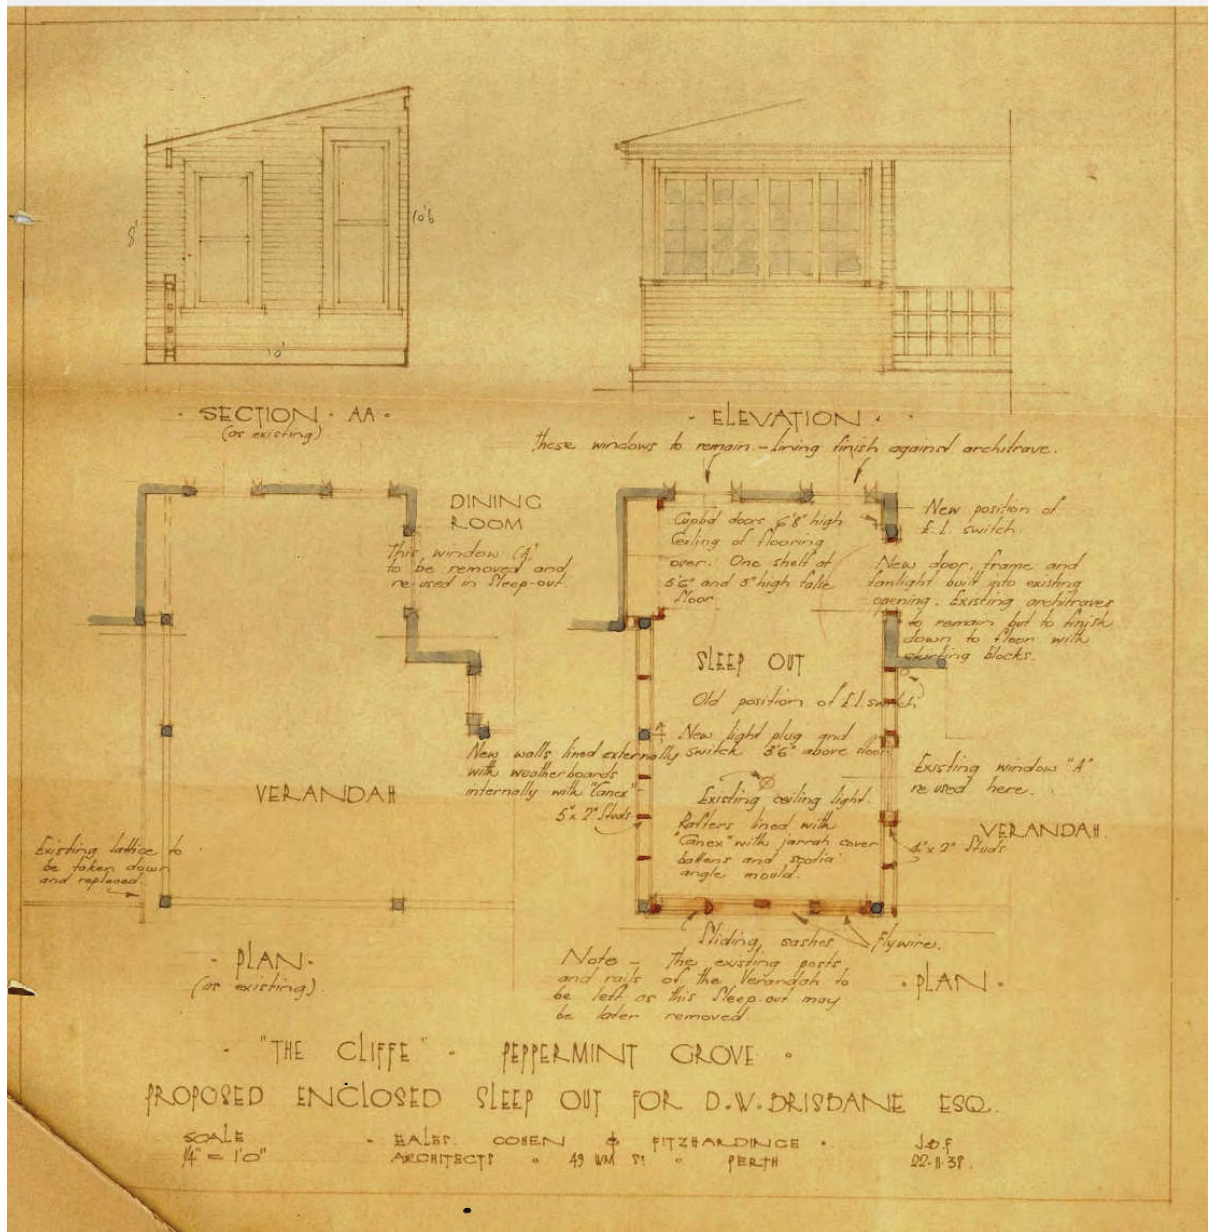 8'
10'6
10'
· SECTION · AA ·
(as existing)
· ELEVATION ·
These windows to remain – lining finish against architrave.
DINING
ROOM
This window 'A'
to be removed and
re-used in Sleep-out.
Cupbd doors 6'8" high
Ceiling of flooring
over. One shelf at
5'6" and 5" high false
floor
New position of
E.L. switch.
New door, frame and
fanlight built into existing
opening. Existing architraves
to remain but to finish
down to floor with
skirting blocks.
SLEEP OUT
Old position of E.L. switch
New light plug and
switch 3'6" above floor
New walls lined externally
with weatherboards
internally with "Canex"
5" x 2" Studs
VERANDAH
Existing window "A"
re-used here.
Existing ceiling light.
Rafters lined with
"Canex" with jarrah cover
battens and scotia
angle mould.
VERANDAH.
4" x 2" Studs
Existing lattice to
be taken down
and replaced.
Sliding sashes
Flywire.
· PLAN ·
(as existing)
Note – The existing posts
and rails of the Verandah to
be left as this Sleep-out may
be later removed.
· PLAN ·
· "THE CLIFFE" · PEPPERMINT GROVE ·
PROPOSED ENCLOSED SLEEP OUT FOR D.W. BRISBANE ESQ.
SCALE
¼" = 1'0"
· EALES. COHEN & FITZHARDINGE ·
ARCHITECTS · 49 WM ST · PERTH
22·11·38.